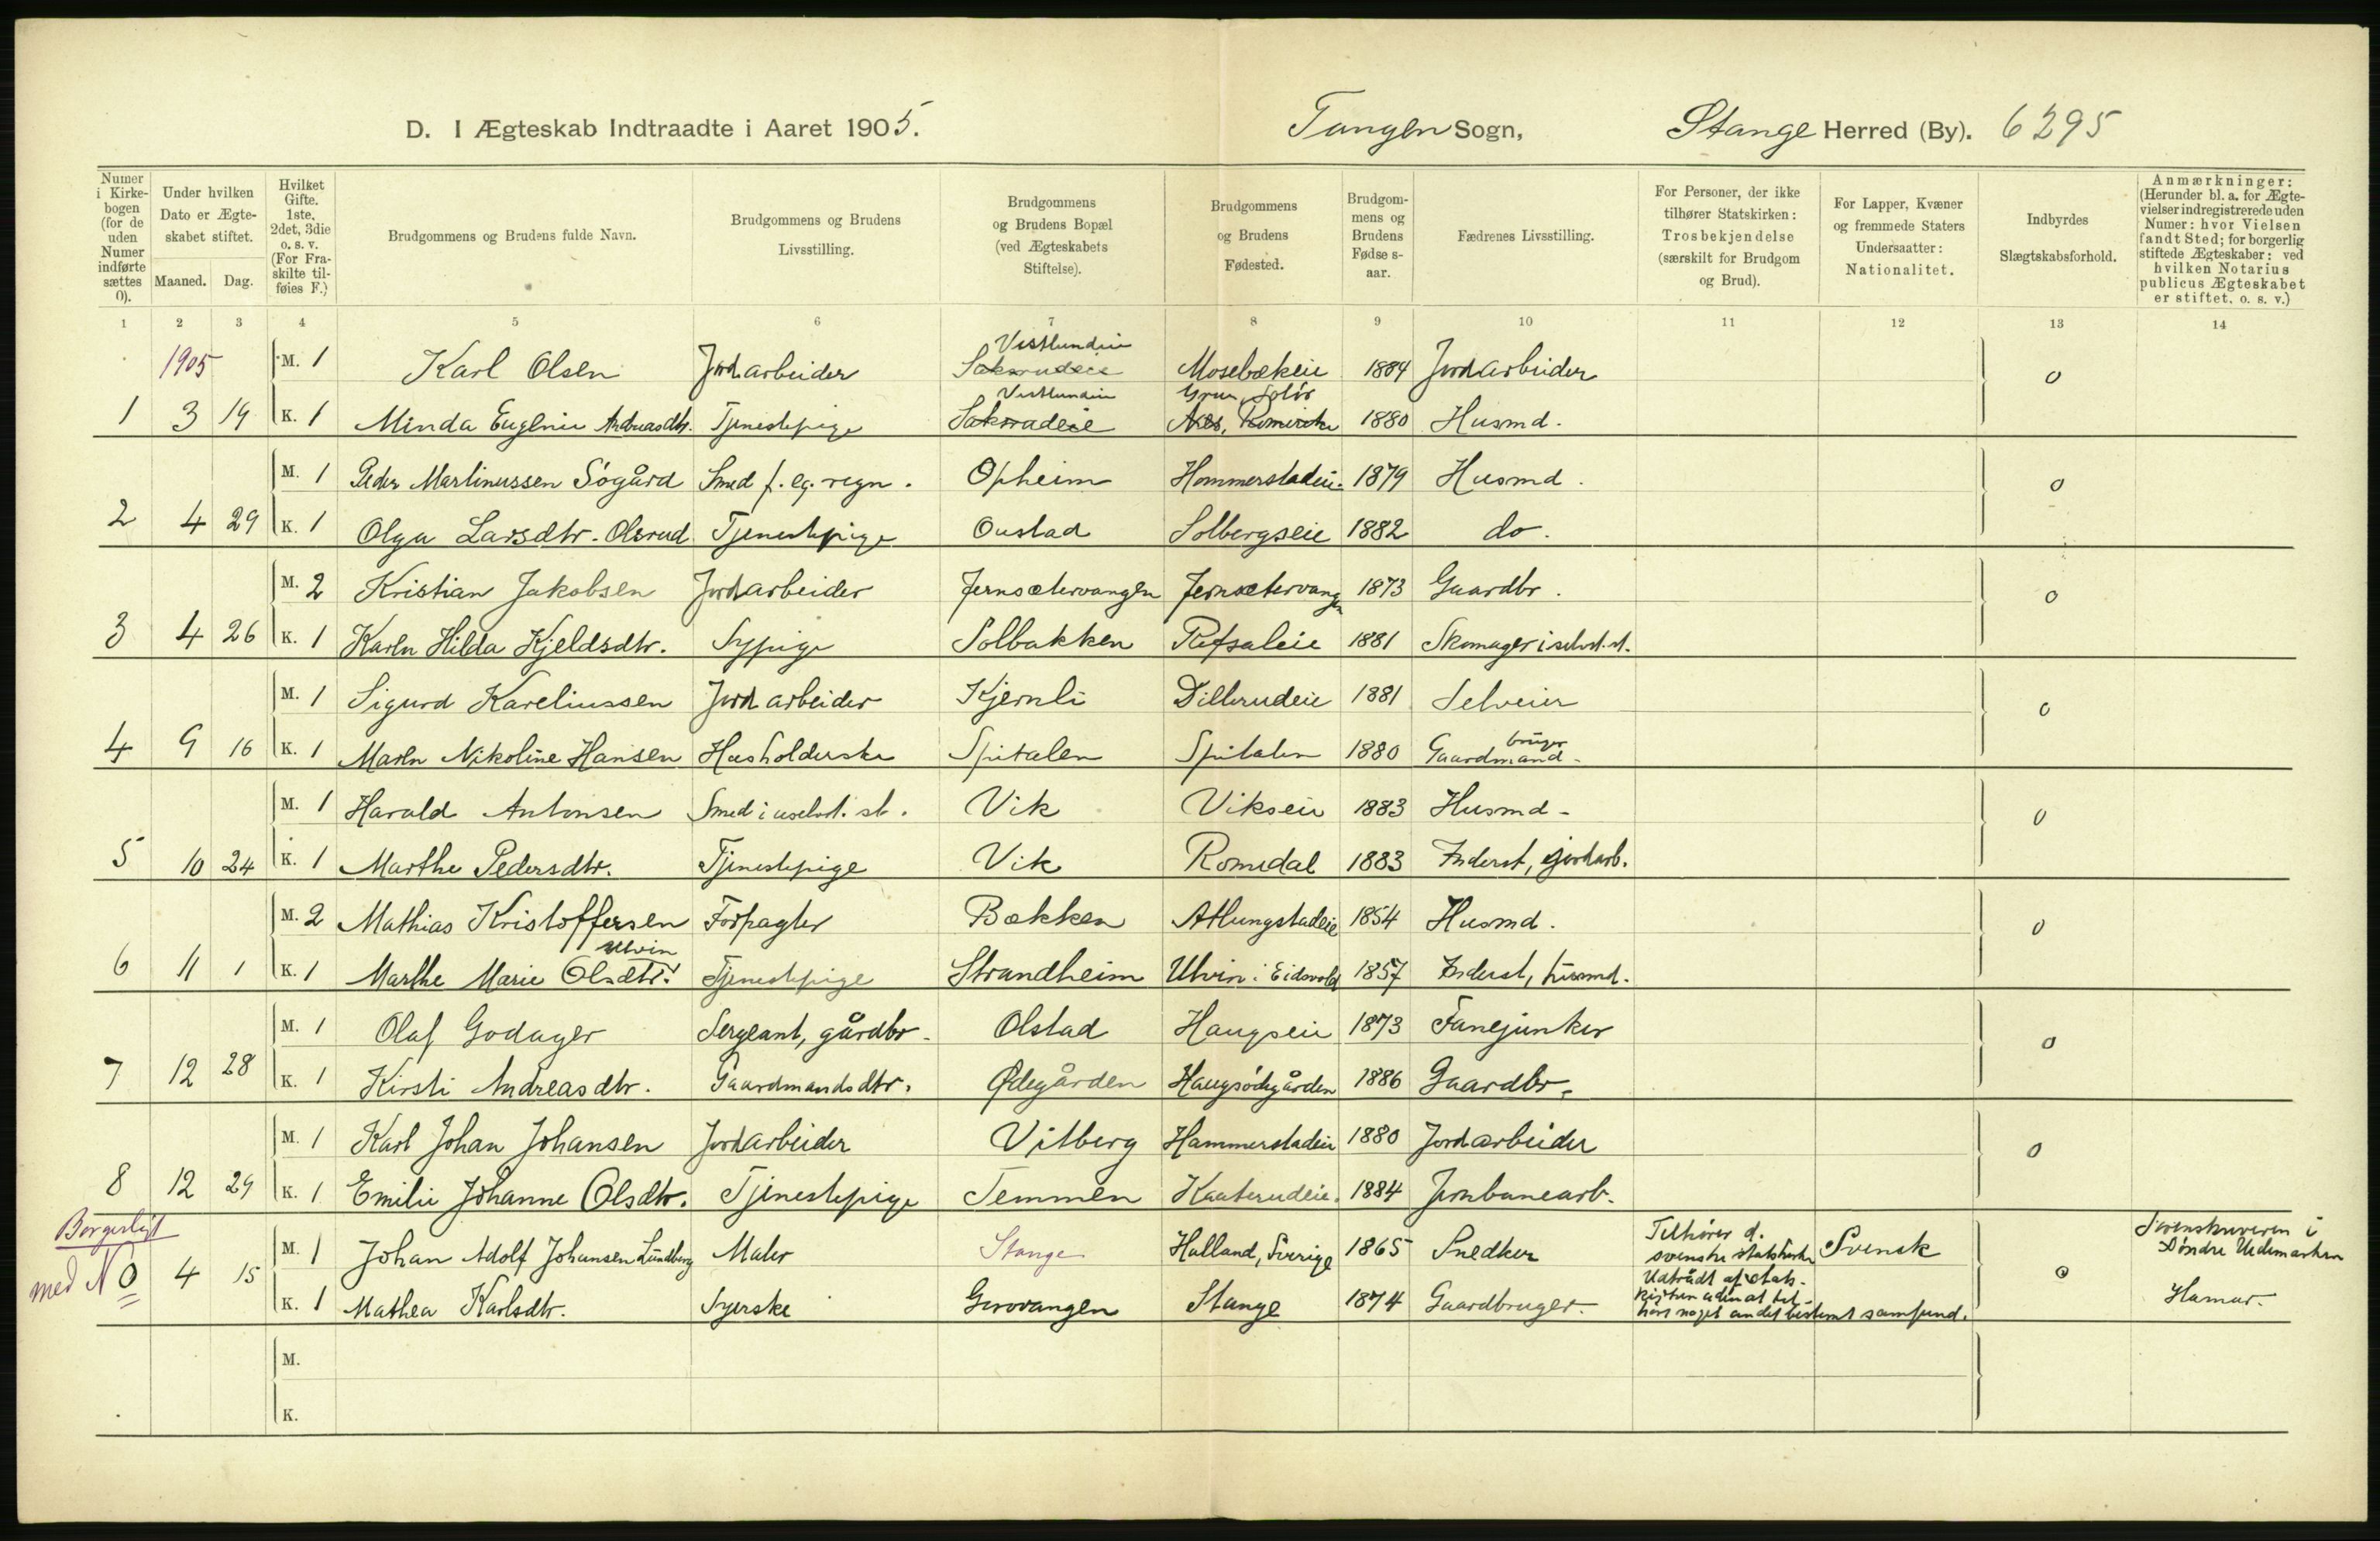 D. I Ægteskab Indtraadte i Aaret 1905. Tangen Sogn, Stange Herred (By). 6295
Numer i Kirkebogen (for de uden Numer indførte sættes 0).
Under hvilken Dato er Ægteskabet stiftet. Maaned. Dag.
Hvilket Gifte. 1ste, 2det, 3die o. s. v. (For Fraskilte tilføies F.)
Brudgommens og Brudens fulde Navn.
Brudgommens og Brudens Livsstilling.
Brudgommens og Brudens Bopæl (ved Ægteskabets Stiftelse).
Brudgommens og Brudens Fødested.
Brudgommens og Brudens Fødselsaar.
Fædrenes Livsstilling.
For Personer, der ikke tilhører Statskirken: Trosbekjendelse (særskilt for Brudgom og Brud).
For Lapper, Kvæner og fremmede Staters Undersaatter: Nationalitet.
Indbyrdes Slægtskabsforhold.
Anmærkninger: (Herunder bl. a. for Ægtevielser indregistrerede uden Numer: hvor Vielsen fandt Sted; for borgerlig stiftede Ægteskaber: ved hvilken Notarius publicus Ægteskabet er stiftet, o. s. v.)
1 2 3 4 5 6 7 8 9 10 11 12 13 14
1905 M. 1 Karl Olsen Jordarbeider Vestlundeie Mosebækeie 1884 Jordarbeider 0
1 3 19 K. 1 Minda Eugenie Andreasdtr. Tjenestepige Vestlundeie Grue, Solør 1880 Husmd.
M. 1 Peder Martinussen Søgård Smed f. eg. regn. Opheim Hommerstadeie 1879 Husmd. 0
2 4 29 K. 1 Olga Larsdtr. Olsrud Tjenestepige Oustad Solbergseie 1882 do.
M. 2 Kristian Jakobsen Jordarbeider Jernsætervangen Jernsætervangen 1873 Gaardbr. 0
3 4 26 K. 1 Karen Hilda Kjeldsdtr. Sypige Solbakken Refsaleie 1881 Skomager i selvst. st.
M. 1 Sigurd Kareliussen Jordarbeider Kjernli Dillerudeie 1881 Selveier 0
4 9 16 K. 1 Maren Nikoline Hansen Husholderske Spitalen Spitalen 1880 Gaardmand bruger
M. 1 Harald Antonsen Smed i uselvst. st. Vik Vikseie 1883 Husmd. 0
5 10 24 K. 1 Marthe Pedersdtr. Tjenestepige Vik Romedal 1883 Inderst, jordarb.
M. 2 Mathias Kristoffersen Forpagter Bækken Atlungstadeie 1854 Husmd. 0
6 11 1 K. 1 Marthe Marie Olsdtr. Ulvin Tjenestepige Strandheim Ulvin i Eidsvold 1857 Inderst, husmd.
M. 1 Olaf Godager Sergeant, gårdbr. Olstad Haugseie 1873 Fanejunker 0
7 12 28 K. 1 Kirsti Andreasdtr. Gaardmandsdtr. Ødegården Haugsødegården 1886 Gaardbr.
M. 1 Karl Johan Johansen Jordarbeider Vitberg Hammerstadeie 1880 Jordarbeider 0
8 12 29 K. 1 Emilie Johanne Olsdtr. Tjenestepige Temmen Kaaterudeie 1884 Jernbanearb.
Borgerligt
M. 1 Johan Adolf Johansen Lundberg Maler Stange Halland, Sverige 1865 Snedker Tilhører d. svenske statskirke Svensk 0 Sorenskriveren i Søndre Hedemarken
med N 0 4 15 K. 1 Mathea Karlsdtr. Syerske Gurovangen Stange 1874 Gaardbruger. Udtrådt af statskirken uden at tilhøre noget andet bestemt samfund. Hamar.
M.
K.